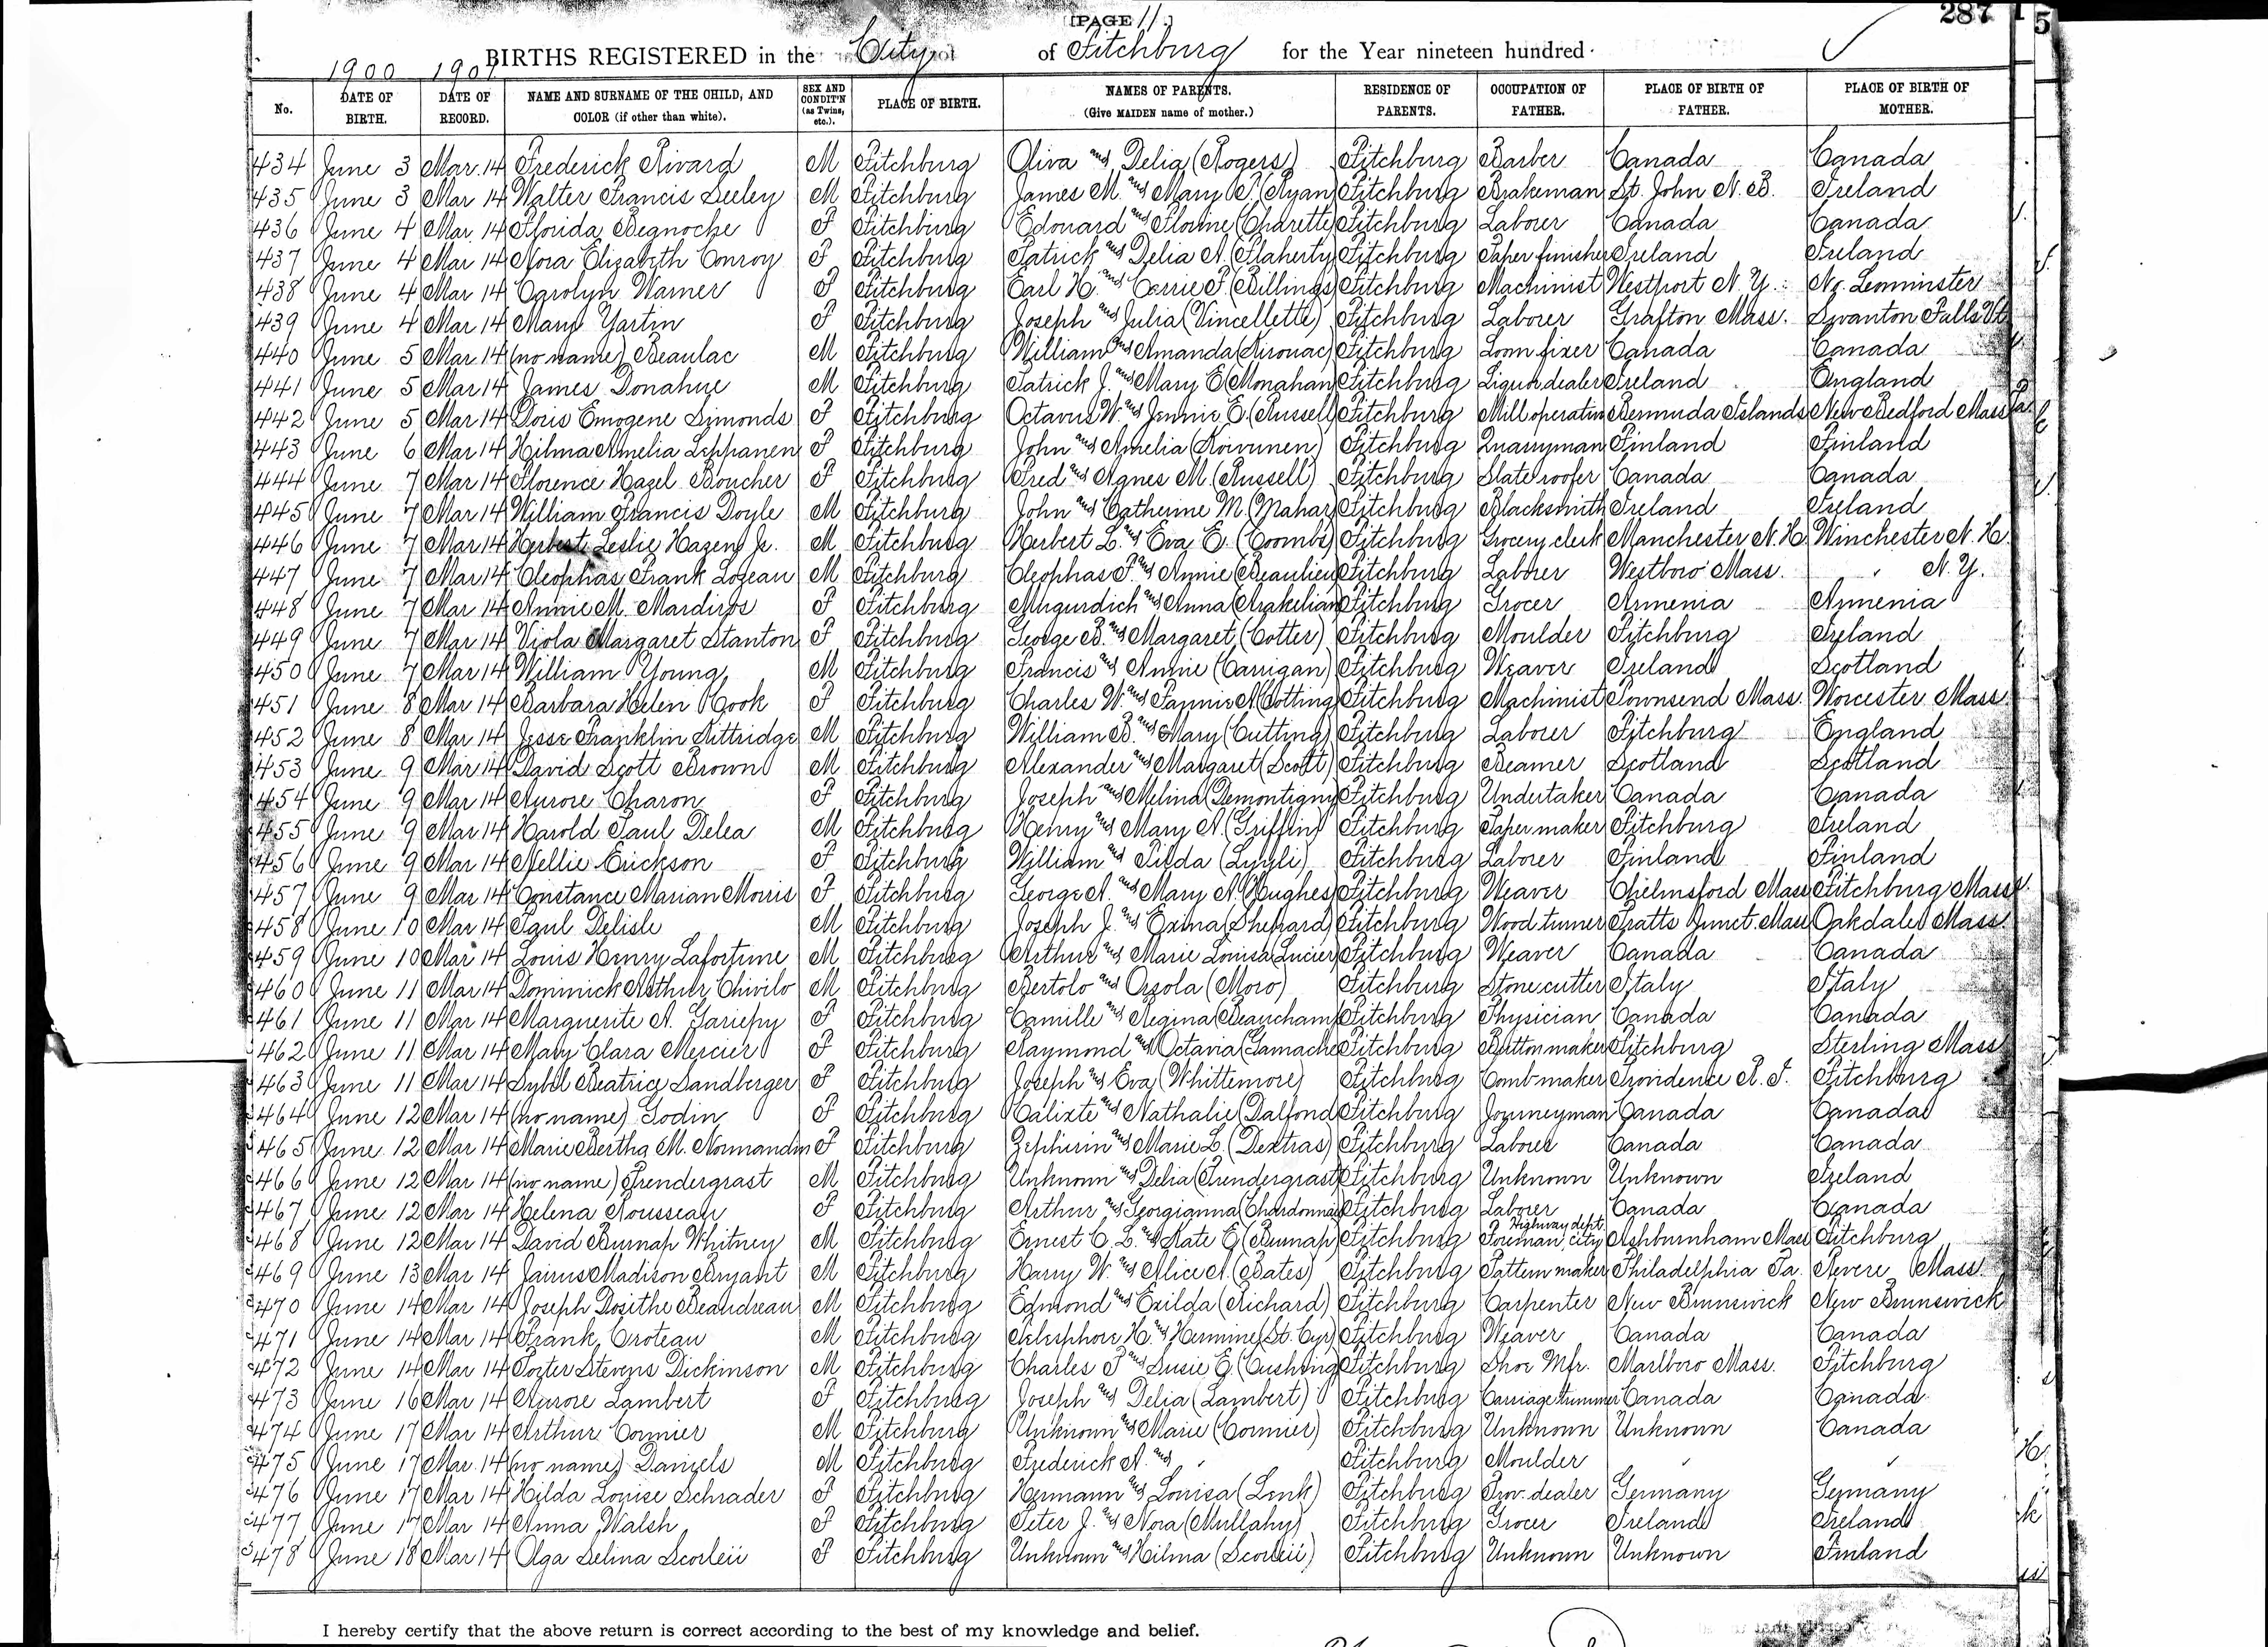 [PAGE 11.]
287
5
BIRTHS REGISTERED in the City of Fitchburg for the Year nineteen hundred
1900 1901
No. DATE OF BIRTH. DATE OF RECORD. NAME AND SURNAME OF THE CHILD, AND COLOR (if other than white). SEX AND CONDIT'N (as Twins, etc.). PLACE OF BIRTH. NAMES OF PARENTS. (Give MAIDEN name of mother.) RESIDENCE OF PARENTS. OCCUPATION OF FATHER. PLACE OF BIRTH OF FATHER. PLACE OF BIRTH OF MOTHER.
434 June 3 Mar 14 Frederick Rivard M Fitchburg Oliva and Delia (Rogers) Fitchburg Barber Canada Canada
435 June 3 Mar 14 Walter Francis Seeley M Fitchburg James M. and Mary (Ryan) Fitchburg Brakeman St. John N. B. Ireland
436 June 4 Mar 14 Florida Begnoche F Fitchburg Edouard and Florine (Charette) Fitchburg Laborer Canada Canada
437 June 4 Mar 14 Nora Elizabeth Conroy F Fitchburg Patrick and Delia A. (Flaherty) Fitchburg Paper finisher Ireland Ireland
438 June 4 Mar 14 Carolyn Warner F Fitchburg Earl H. and Carrie F. (Billings) Fitchburg Machinist Westport N. Y. No. Leominster
439 June 4 Mar 14 Mary Yartin F Fitchburg Joseph and Julia (Vincellette) Fitchburg Laborer Grafton Mass. Swanton Falls Vt
440 June 5 Mar 14 (no name) Beaulac M Fitchburg William and Amanda (Kirouac) Fitchburg Loom fixer Canada Canada
441 June 5 Mar 14 James Donahue M Fitchburg Patrick J. and Mary E. (Monahan) Fitchburg Liquor dealer Ireland England
442 June 5 Mar 14 Doris Emogene Simonds F Fitchburg Octavus W. and Jennie E. (Russell) Fitchburg Mill operative Bermuda Islands New Bedford Mass
443 June 6 Mar 14 Hilma Amelia Leppanen F Fitchburg John and Amelia (Koivunen) Fitchburg Quarryman Finland Finland
444 June 7 Mar 14 Florence Hazel Boucher F Fitchburg Fred and Agnes M. (Russell) Fitchburg Slate roofer Canada Canada
445 June 7 Mar 14 William Francis Doyle M Fitchburg John and Catherine M. (Mahar) Fitchburg Blacksmith Ireland Ireland
446 June 7 Mar 14 Herbert Leslie Hazen Jr. M Fitchburg Herbert L. and Eva E. (Coombs) Fitchburg Grocery clerk Manchester N. H. Winchester N. H.
447 June 7 Mar 14 Cleophas Frank Lozeau M Fitchburg Cleophas F. and Annie (Beaulieu) Fitchburg Laborer Westboro Mass. N. Y.
448 June 7 Mar 14 Annie M. Mardiros F Fitchburg Mugurdich and Anna (Arakelian) Fitchburg Grocer Armenia Armenia
449 June 7 Mar 14 Viola Margaret Stanton F Fitchburg George B. and Margaret (Cotter) Fitchburg Moulder Fitchburg Ireland
450 June 7 Mar 14 William Young M Fitchburg Francis and Annie (Carrigan) Fitchburg Weaver Ireland Scotland
451 June 8 Mar 14 Barbara Helen Cook F Fitchburg Charles W. and Fannie A. (Cotting) Fitchburg Machinist Townsend Mass. Worcester Mass.
452 June 8 Mar 14 Jesse Franklin Kittridge M Fitchburg William B. and Mary (Cutting) Fitchburg Laborer Fitchburg England
453 June 9 Mar 14 David Scott Brown M Fitchburg Alexander and Margaret (Scott) Fitchburg Beamer Scotland Scotland
454 June 9 Mar 14 Aurore Charon F Fitchburg Joseph and Melina (Demontigny) Fitchburg Undertaker Canada Canada
455 June 9 Mar 14 Harold Paul Delea M Fitchburg Henry and Mary A. (Griffin) Fitchburg Paper maker Fitchburg Ireland
456 June 9 Mar 14 Nellie Erickson F Fitchburg William and Tilda (Lyyli) Fitchburg Laborer Finland Finland
457 June 9 Mar 14 Constance Marian Morris F Fitchburg George A. and Mary A. (Hughes) Fitchburg Weaver Chelmsford Mass Fitchburg Mass.
458 June 10 Mar 14 Paul Delisle M Fitchburg Joseph J. and Exina (Shepard) Fitchburg Wood turner Pratts Junct. Mass Oakdale Mass.
459 June 10 Mar 14 Louis Henry Lafortune M Fitchburg Arthur and Marie Louisa (Lucier) Fitchburg Weaver Canada Canada
460 June 11 Mar 14 Dominick Arthur Chivilo M Fitchburg Bertolo and Orsola (Moro) Fitchburg Stone cutter Italy Italy
461 June 11 Mar 14 Marguerite A. Gariepy F Fitchburg Camille and Regina (Beauchamp) Fitchburg Physician Canada Canada
462 June 11 Mar 14 Mary Clara Mercier F Fitchburg Raymond and Octavia (Gamache) Fitchburg Button maker Fitchburg Sterling Mass
463 June 11 Mar 14 Sybil Beatrice Sandberger F Fitchburg Joseph and Eva (Whittemore) Fitchburg Comb-maker Providence R. I. Fitchburg
464 June 12 Mar 14 (no name) Godin F Fitchburg Calixte and Nathalie (Dalfond) Fitchburg Journeyman Canada Canada
465 June 12 Mar 14 Marie Bertha M. Normandin F Fitchburg Zephirin and Marie L. (Dextras) Fitchburg Laborer Canada Canada
466 June 12 Mar 14 (no name) Prendergrast M Fitchburg Unknown and Delia (Prendergrast) Fitchburg Unknown Unknown Ireland
467 June 12 Mar 14 Helena Rousseau F Fitchburg Arthur and Georgianna (Chardonnais) Fitchburg Laborer Canada Canada
468 June 12 Mar 14 David Burnap Whitney M Fitchburg Ernest C. L. and Kate E. (Burnap) Fitchburg Foreman, city Highway dept. Ashburnham Mass Fitchburg
469 June 13 Mar 14 Jairus Madison Bryant M Fitchburg Harry W. and Alice A. (Bates) Fitchburg Pattern maker Philadelphia Pa. Revere Mass.
470 June 14 Mar 14 Joseph Dosithe Beaudreau M Fitchburg Edmond and Exilda (Richard) Fitchburg Carpenter New Brunswick New Brunswick
471 June 14 Mar 14 Frank Croteau M Fitchburg Telesphore H. and Hermine (St. Cyr) Fitchburg Weaver Canada Canada
472 June 14 Mar 14 Foster Stevens Dickinson M Fitchburg Charles P. and Susie E. (Cushing) Fitchburg Shoe Mfr. Marlboro Mass. Fitchburg
473 June 16 Mar 14 Aurore Lambert F Fitchburg Joseph and Delia (Lambert) Fitchburg Carriage trimmer Canada Canada
474 June 17 Mar 14 Arthur Cormier M Fitchburg Unknown and Marie (Cormier) Fitchburg Unknown Unknown Canada
475 June 17 Mar 14 (no name) Daniels M Fitchburg Frederick A. and Fitchburg Moulder
476 June 17 Mar 14 Hilda Louise Schrader F Fitchburg Hermann and Louisa (Link) Fitchburg Prov. dealer Germany Germany
477 June 17 Mar 14 Anna Walsh F Fitchburg Peter J. and Nora (Mullahy) Fitchburg Grocer Ireland Ireland
478 June 18 Mar 14 Olga Selina Scorleii F Fitchburg Unknown and Hilma (Scorleii) Fitchburg Unknown Unknown Finland
I hereby certify that the above return is correct according to the best of my knowledge and belief.